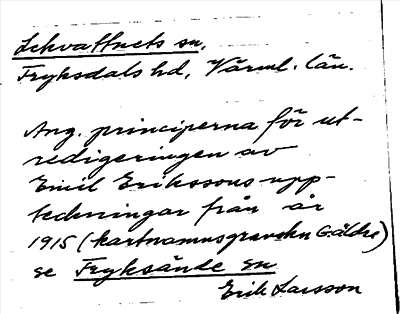 Lekvattnets sn,
Fryksdals hd, Värml. län.
Ang. principerna för ut-
redigeringen av
Emil Erikssons upp-
teckningar från år
1915 (kartnamnsgranskn G. äldre)
se Fryksände sn
Erik Larsson